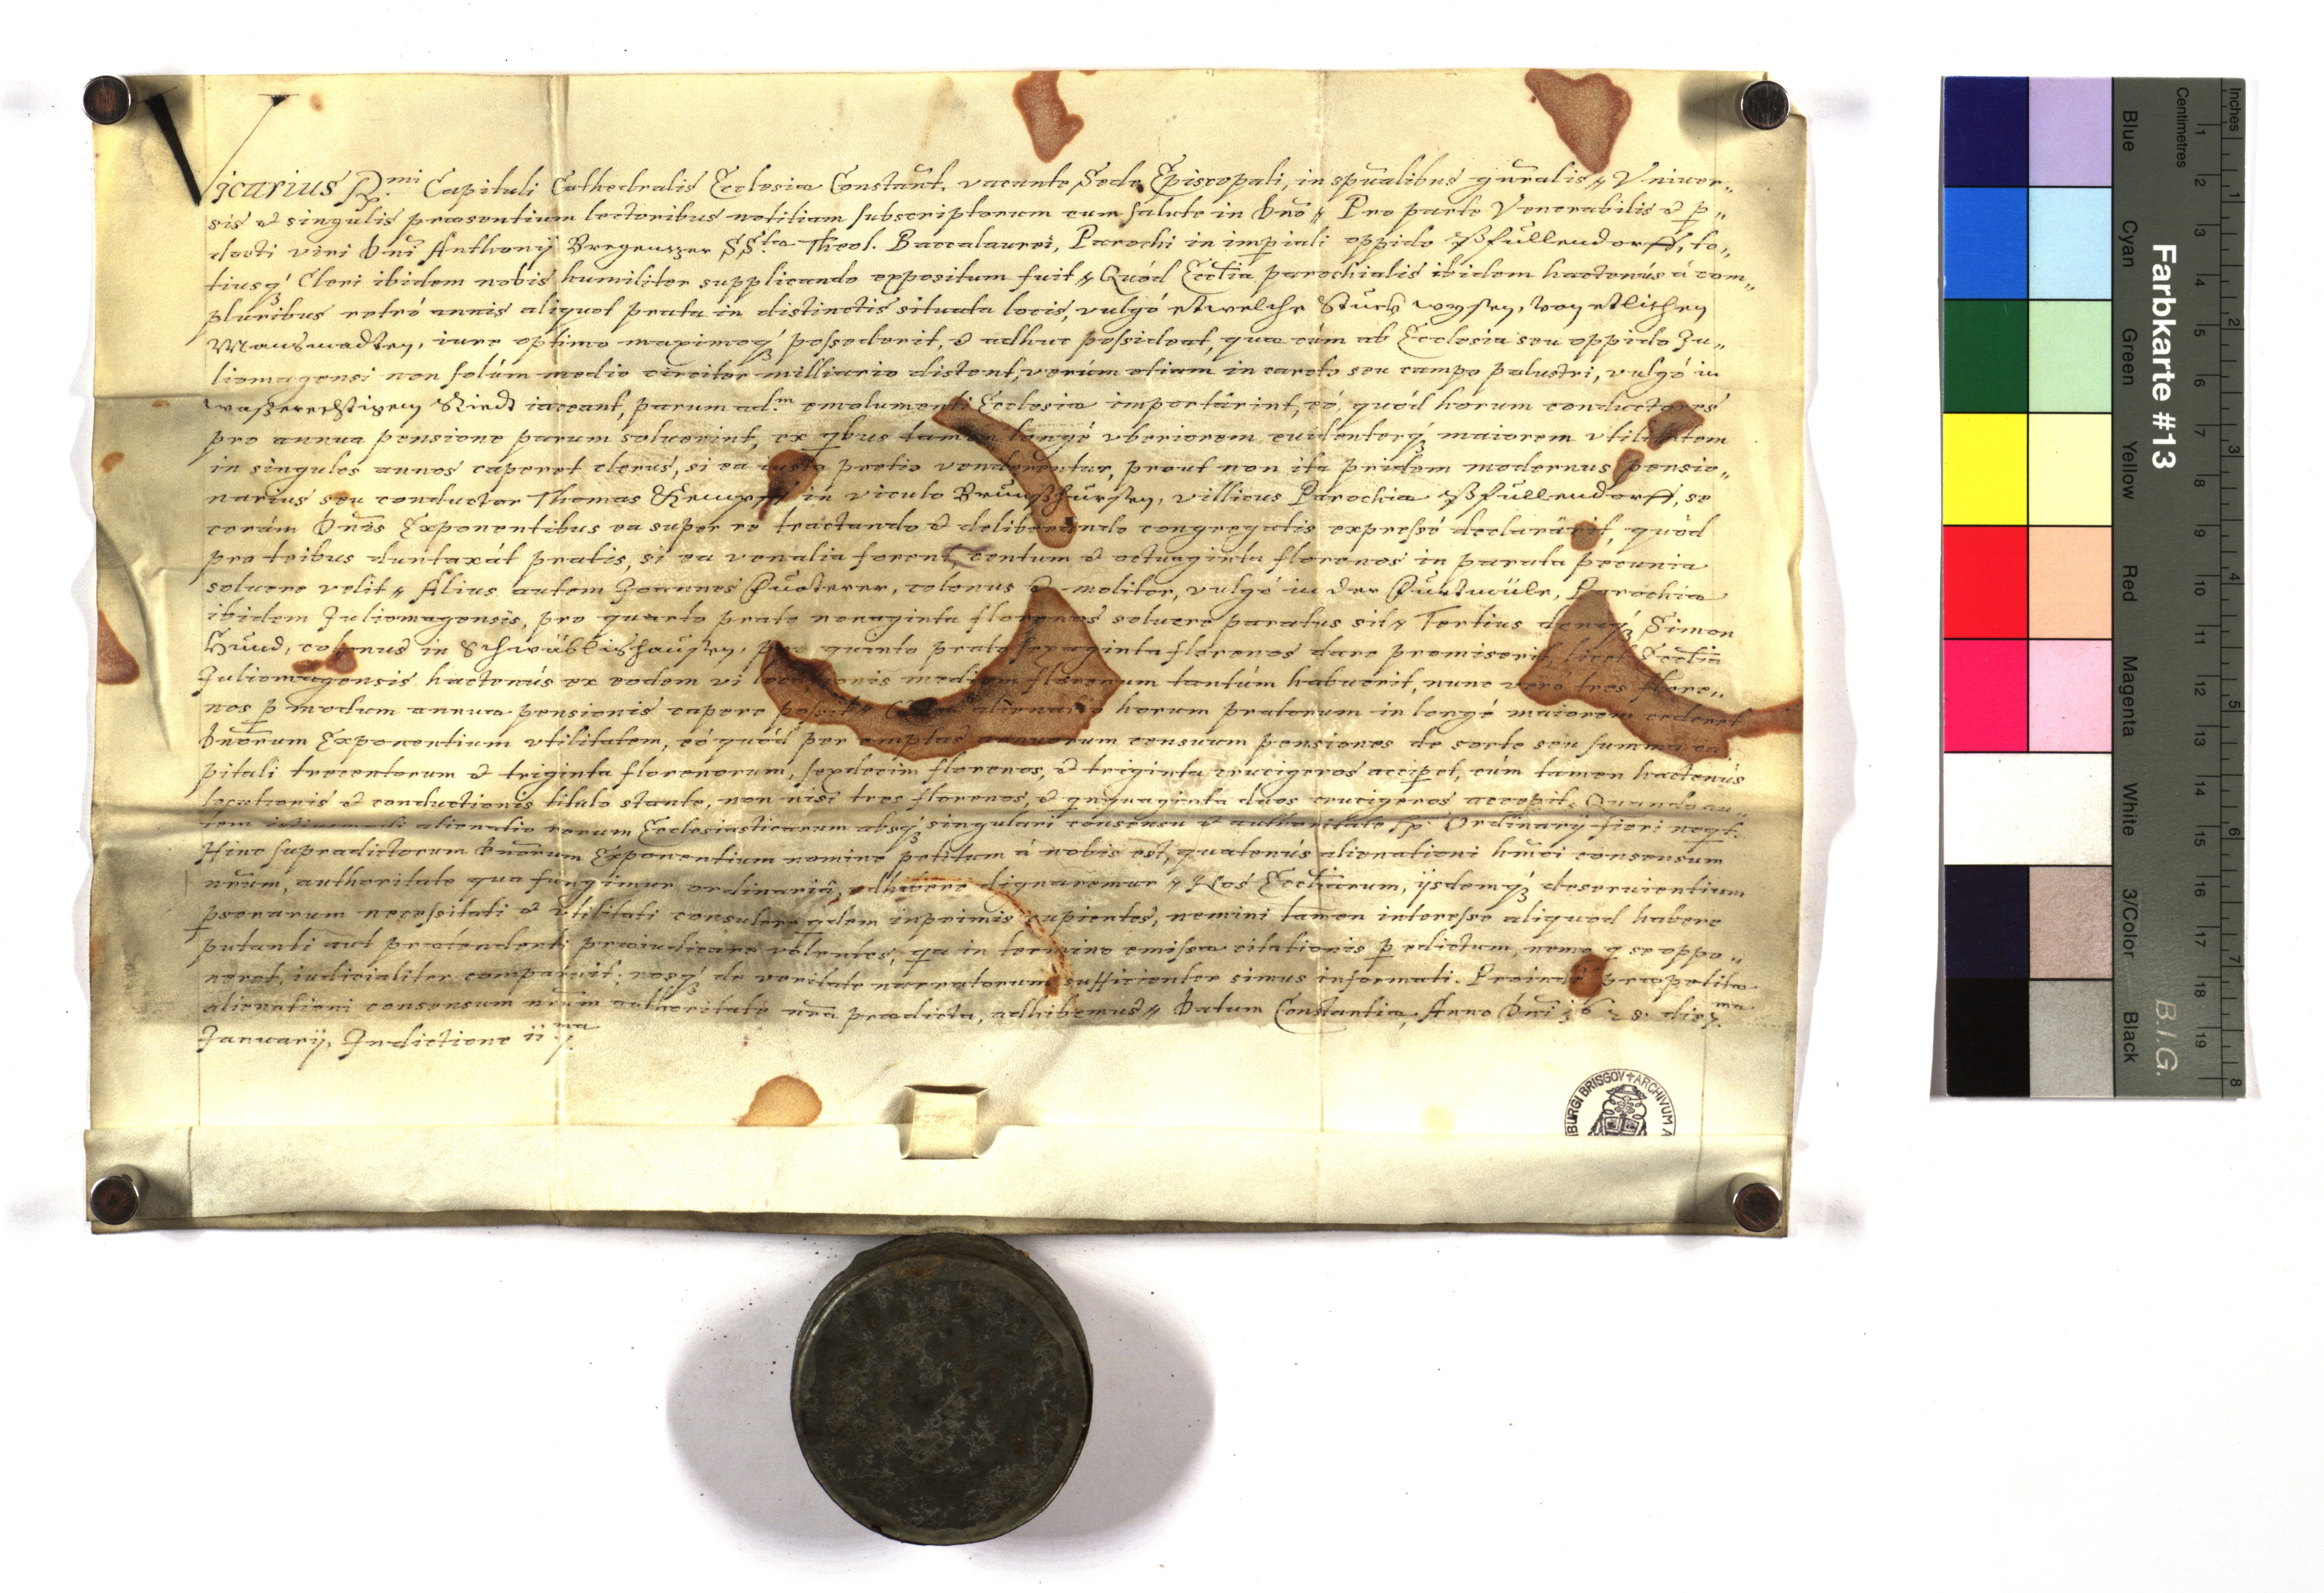 Vicarius R.mi Capituli Cathedralis Ecclesiæ Constañt. vacante Sede Episcopali, in spũalibus gñralis // Vniuer„
sis & singulis præsentium lectoribus notitiam subscriptorum cum salute in Dño // Pro parte Venerabilis & p„
docti viri Dñi Anthonij Bregenzer SS.tæ Theol. Baccalaurei, Parochi in impiali oppido Pfullendorff, to„
tiusq́ Cleri ibidem nobis humiliter supplicando expositum fuit // Quód Ecclĩa parochialis ibidem hactenús á com„
pluribus retró annis aliquot prata in distinctis situata locis, vulgó etwelche Stuckh wysen, von etlichen
Mansmadten, iure optimo maximoq́ʒ possederit, & adhuc possideat, quæ cúm ab Ecclesia seu oppido Ju„
liomagensi non solúm medio circiter milliario distent, verúm etiam in carecto seu campo palustri, vulgó in
Riedt iaceant, parum ad.m emolumenti Ecclesiæ importârint, eó, quód horum conductores
pro annua pensione parum soluerint, ex qbus tamen longé vberiorem euidenterq́ʒ maiorem vtilitatem
in singulos annos caperet clerus, si ea iusto pretio venderentur, prout non ita pridem modernus pensio„
narius seu conductor Thomas in viculo villicus Parochiæ Pfullendorff, se
corám Dñis Exponentibus ea super re tractando & deliberando congregatis expressé declarârit, quód
pro tribus duntaxát pratis, si ea venalia forent, centum & octuaginta florenos in parata pecunia
soluere velit // Alius autem Joannes colonus & molitor, vulgó in der Parochiæ
ibidem Juliomagensis, pro quarto prato nonaginta florenos soluere paratus sit // Tertius deniq́ʒ Simon
Hund, colonus in Schwäblishausen, pro quinto prato sexaginta florenos dare promiserit, licet Ecclĩa
Juliomagensis hactenús ex eodem vi locationis medium florenum tantúm habuerit, nunc veró tres flore„
nos p modum annuæ pensionis capere possit // alienatio horum pratorum in longé maiorem cederet
Dñorum Exponentium vtilitatem, eó quód per emptas annuorum censuum pensiones de sorte seu summa ca
pitali trecentorum & triginta florenorum, sexdecim florenos, & triginta crucigeros accipet, cúm tamen hactenús
locationis & conductionis titulo stante, non nisi tres florenos, & qnquaginta duos crucigeros accepit. Quando au„
tem istiusmodi alienatio rerum Ecclesiasticarum absq́ʒ singulari consensu & authoritate Ordinarij fieri neqt.
Hinc supradictorum Dñorum Exponentium nomine petitum á nobis est, quatenús alienationi hmõi consensum
nrũm, authoritate qua fungimur ordinariâ, adhibere dignaremur // Nos Ecclĩarum, ijsdemq́ʒ deseruientium
psonarum necessitati & vtilitati consulere qdem inprimis cupientes, nemini tamen interesse aliquod habere
putanti aut prætendenti præiudicare volentes, qa in termino emissæ citationis p edictum, nemo q se oppo„
neret, iudicialiter comparuit: nosq́ʒ de veritate narratorum sufficienter simus informati. Proinde præpetitæ
alienationi consensum nrũm authoritate nrã prædicta, adhibemus // Datum Constantiæ, Anno Dñi 1628. die 7.ma
Januarij, Indictione ii.ma
BURGI BRISGOV ✝ ARCHIVUM A
Farbkarte #13
B.I.G.
Inches
Centimetres
1 2 3 4 5 6 7 8 9 10 11 12 13 14 15 16 17 18 19
1 2 3 4 5 6 7 8
Blue
Cyan
Green
Yellow
Red
Magenta
White
3/Color
Black